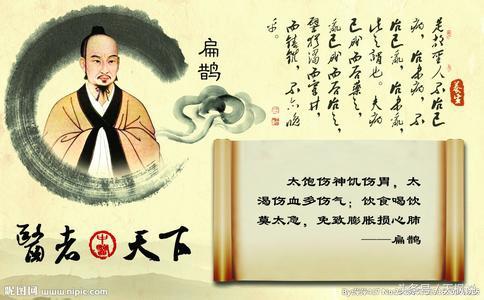 是故聖人不治已
病，治未病，不
治已亂，治未亂，
此之謂也。夫病
已成而后藥之，
亂已成而后治之，
譬猶渴而穿井，
而鑄錐，不亦晚
乎。
养生
扁鹊
太饱伤神饥伤胃，太
渴伤血多伤气；饮食喝饮
莫太急，免致膨胀损心肺
——扁鹊
醫者 中醫 天下
昵图网 www.nipic.com
头条号